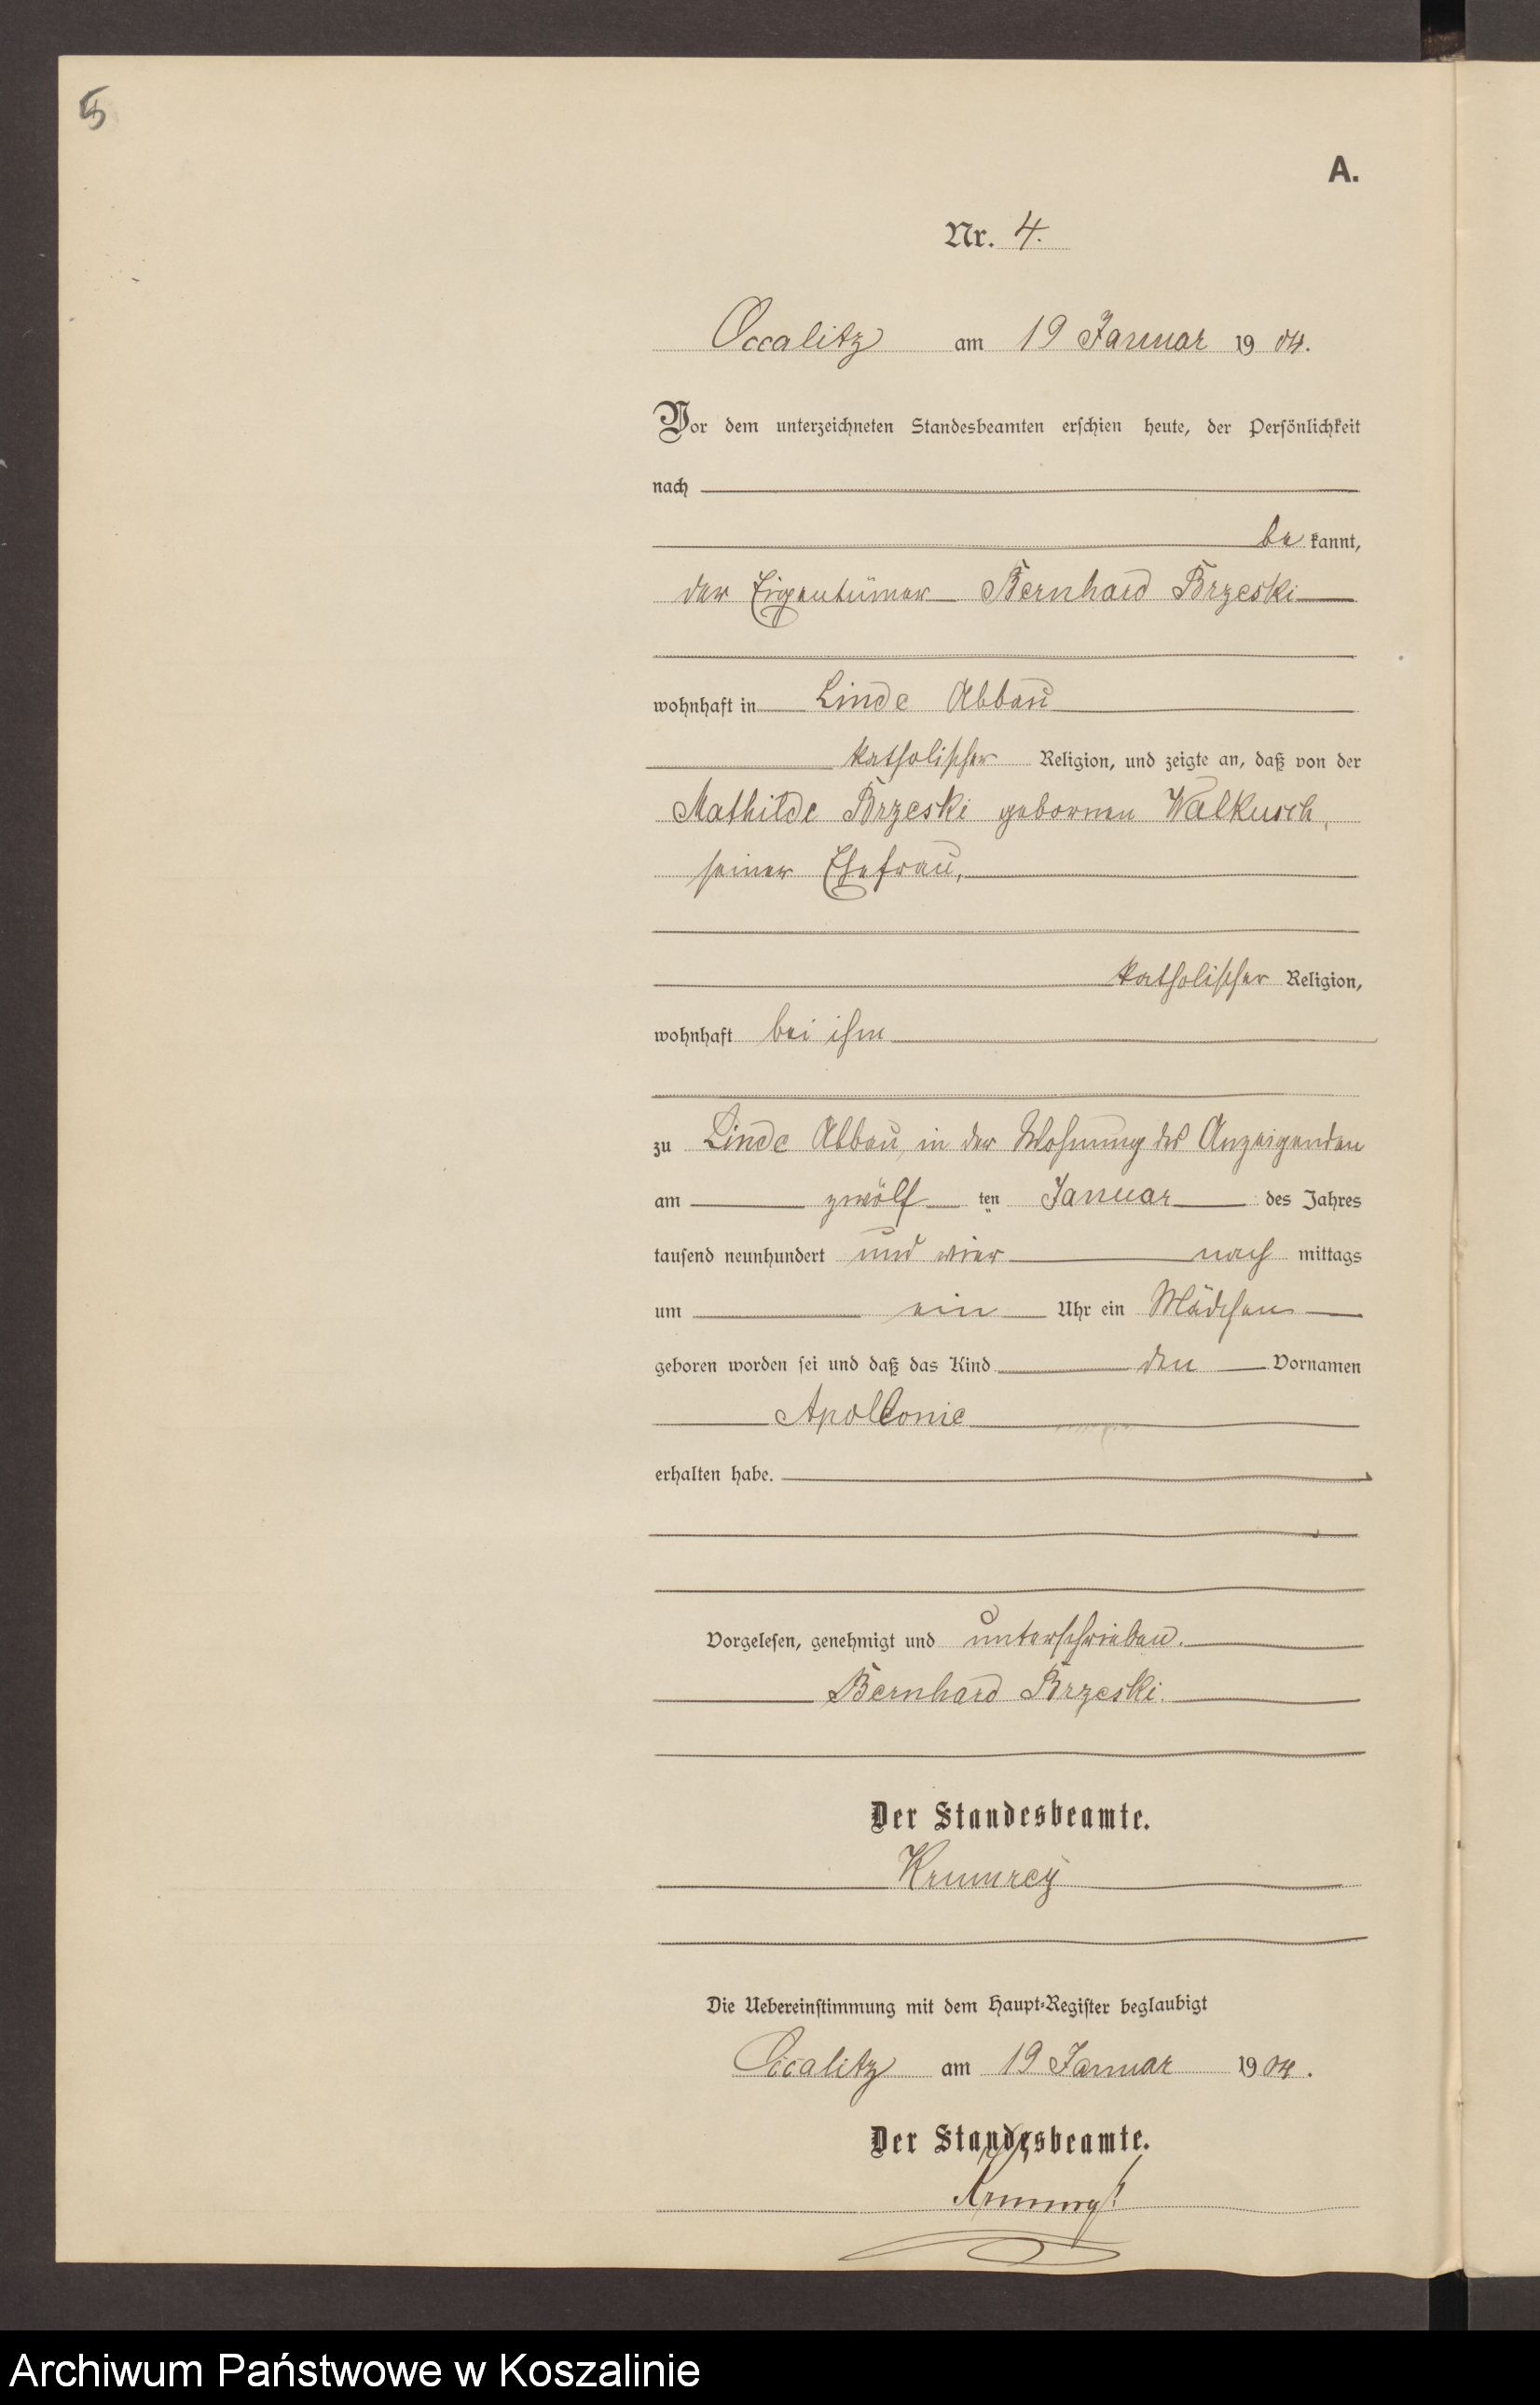 5
A.
Nr. 4.
Occalitz am 19 Januar 1904.
Vor dem unterzeichneten Standesbeamten erschien heute, der Persönlichkeit
nach
be kannt,
der Eigentümer Bernhard Brzeski
wohnhaft in Linde Abbau
katholischer Religion, und zeigte an, daß von der
Mathilde Brzeski gebornen Walkusch,
seiner Ehefrau,
katholischer Religion,
wohnhaft bei ihm
zu Linde Abbau, in der Wohnung des Anzeigenden
am zwölf ten Januar des Jahres
tausend neunhundert und vier nach mittags
um ein Uhr ein Mädchen
geboren worden sei und daß das Kind den Vornamen
Apollonie
erhalten habe.
Vorgelesen, genehmigt und unterschrieben.
Bernhard Brzeski.
Der Standesbeamte.
Krumrey
Die Uebereinstimmung mit dem Haupt-Register beglaubigt
Occalitz am 19 Januar 1904.
Der Standesbeamte.
Krumrey
Archiwum Państwowe w Koszalinie